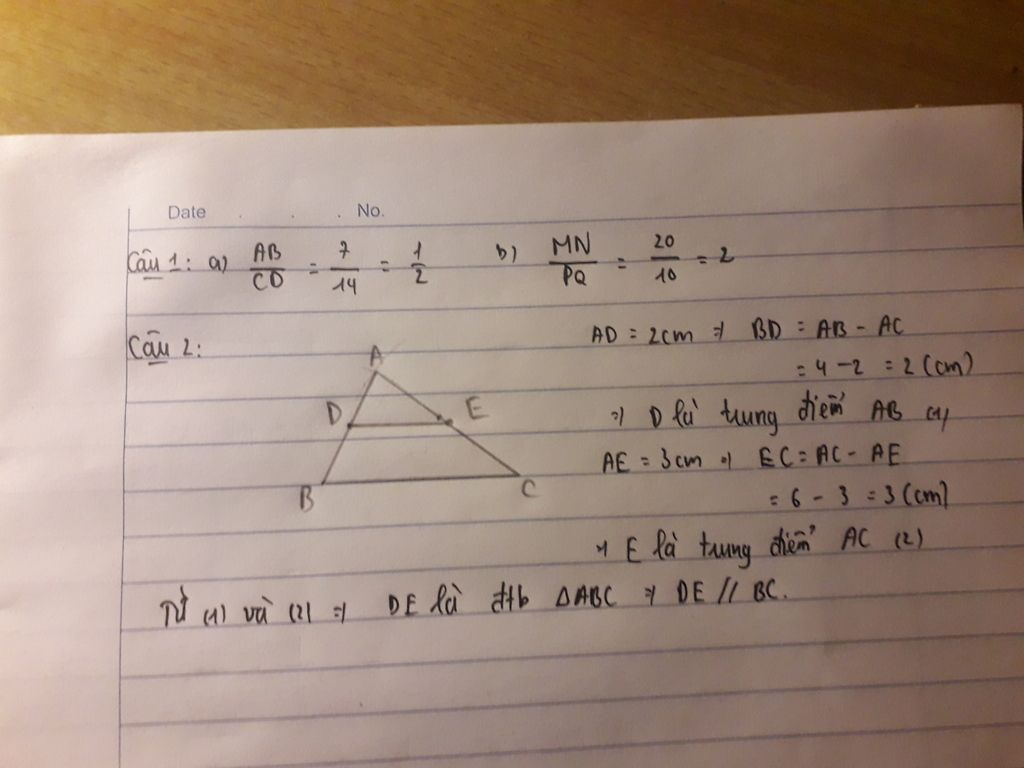 Date . . . No.
Câu 1: a) AB/CD = 7/14 = 1/2 b) MN/PQ = 20/10 = 2
Câu 2:
A
D
E
B
C
AD = 2cm => BD = AB - AC
= 4 - 2 = 2 (cm)
=> D là trung điểm AB (1)
AE = 3cm => EC = AC - AE
= 6 - 3 = 3 (cm)
=> E là trung điểm AC (2)
Từ (1) và (2) => DE là đtb ΔABC => DE // BC.